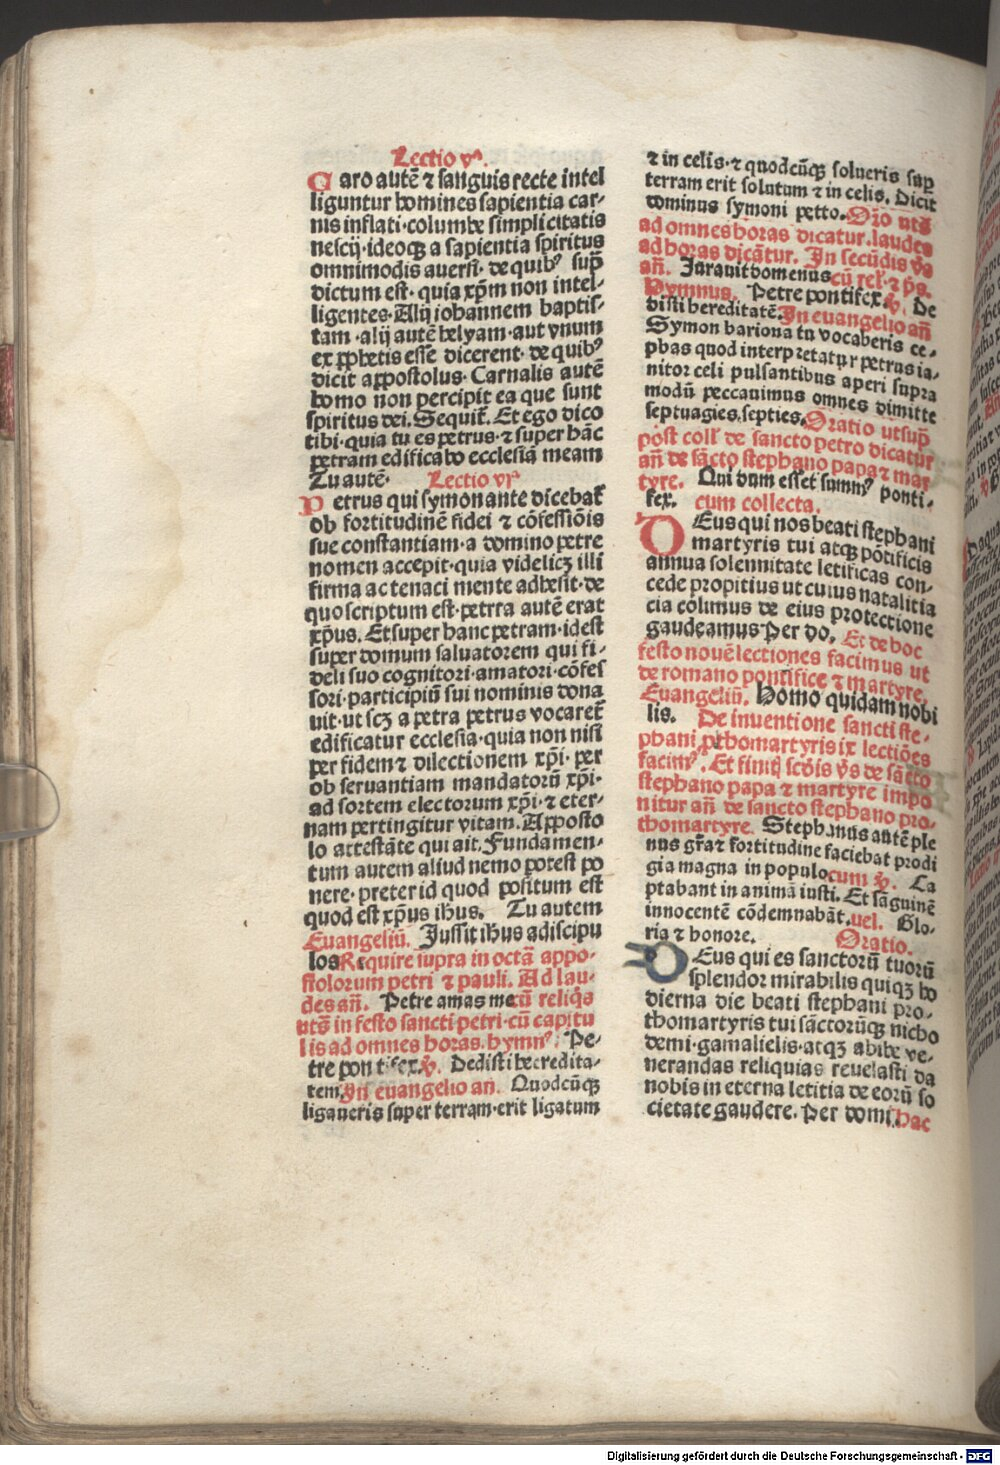 Lectio vª.
Caro autẽ ⁊ sanguis recte intel
liguntur homines sapientia car-
nis inflati·columbe simplicitatis
nescij·ideoqȝ a sapientia spiritus
omnimodis auersi· de quibꝰ sup̃
dictum est· quia xp̃m non intel-
ligentes·Alij iohannem baptis-
tam·alij autẽ helyam·aut vnum
ex ꝓphetis esse dicerent· de quibꝰ
dicit appostolus· Carnalis autẽ
homo non percipit ea que sunt
spiritus dei. Sequit᷑. Et ego dico
tibi·quia tu es petrus·⁊ super hãc
petram edificabo ecclesiã meam
Tu autẽ· Lectio vjª
Petrus qui symon ante dicebat᷑
ob fortitudinẽ fidei ⁊ cõfessiõis
sue constantiam·a domino petre
nomen accepit·quia videlicȝ illi
firma ac tenaci mente adhesit·de
quo scriptum est·petrra autẽ erat
xp̃us. Et super hanc petram·idest
super domum saluatorem qui fi-
deli suo cognitori·amatori·cõfes
sori·participiũ sui nominis dona
uit·ut scȝ a petra petrus vocaret᷑
edificatur ecclesia·quia non nisi
per fidem ⁊ dilectionem xp̃i· per
ob seruantiam mandatorũ xp̃i·
ad sortem electorum xp̃i·⁊ eter-
nam pertingitur vitam. Apposto
lo attestãte qui ait. Fundamen-
tum autem aliud nemo potest po
nere·preter id quod positum est
quod est xp̃us ihus. Tu autem
Euangeliũ. Jussit ihus adiscipu
los Require supra in octã appo-
stolorum petri ⁊ pauli. Ad lau-
des añ. Petre amas me cũ reliq̃s
utš in festo sancti petri·cũ capitu
lis ad omnes horas. hymnꝰ. Pe-
tre pontifex. ℣. Dedisti hecredita-
tem. Jn euangelio añ. Quodcũqȝ
ligaueris super terram·erit ligatum
⁊ in celis·⁊ quodcũqȝ solueris sup
terram erit solutum ⁊ in celis. Dicit
dominus symoni petro. Oro utš
ad omnes horas dicatur. laudes
ad horas dicãtur. Jn secũdis v̓s
añ. Jurauit domenus cũ rel᷑·⁊ p̃s.
Hymnus. Petre pontifex. ℣. De
disti hereditatẽ. Jn euangelio añ
Symon bariona tu vocaberis ce-
phas quod interpretatur petrus ia-
nitor celi pulsantibus aperi supra
modũ peccauimus omnes dimitte
septuagies septies. Oratio utsup̃
post coll᷑ de sancto petro dicatur
añ de sãcto stephano papa ⁊ mar
tyre. Qui dum esset summꝰ ponti-
fex. cum collecta.
Deus qui nos beati stephani
martyris tui atqȝ põtificis
annua solennitate letificas con-
cede propitius ut cuius natalitia
cia colimus de eius protectione
gaudeamus Per do. Et de hoc
festo nouẽ lectiones facimus ut
de romano pontifice ⁊ martyre.
Euangeliũ. Homo quidam nobi
lis. De inuentione sancti ste-
phani prthomartyris ix lectiões
facimꝰ. Et finit᷑ scđis v̓s de sãcto
stephano papa ⁊ martyre impo
nitur añ de sancto stephano pro-
thomartyre. Stephanus autẽ ple
nus grãt fortitudine faciebat prodi
gia magna in populo cum ℣. Ca
ptabant in animã iusti. Et sãguinẽ
innocentẽ cõdemnabãt. uel. Glo-
ria ⁊ honore. Oratio.
Deus qui es sanctorũ tuorũ
splendor mirabilis quiqȝ ho
dierna die beati stephani pro-
thomartyris tui sãctorũqȝ nicho
demi·gamalielis·atqȝ abibe ve-
nerandas reliquias reuelasti da
nobis in eterna letitia de eorũ so
cietate gaudere. Per domi. Hac
Digitalisierung gefördert durch die Deutsche Forschungsgemeinschaft - DFG